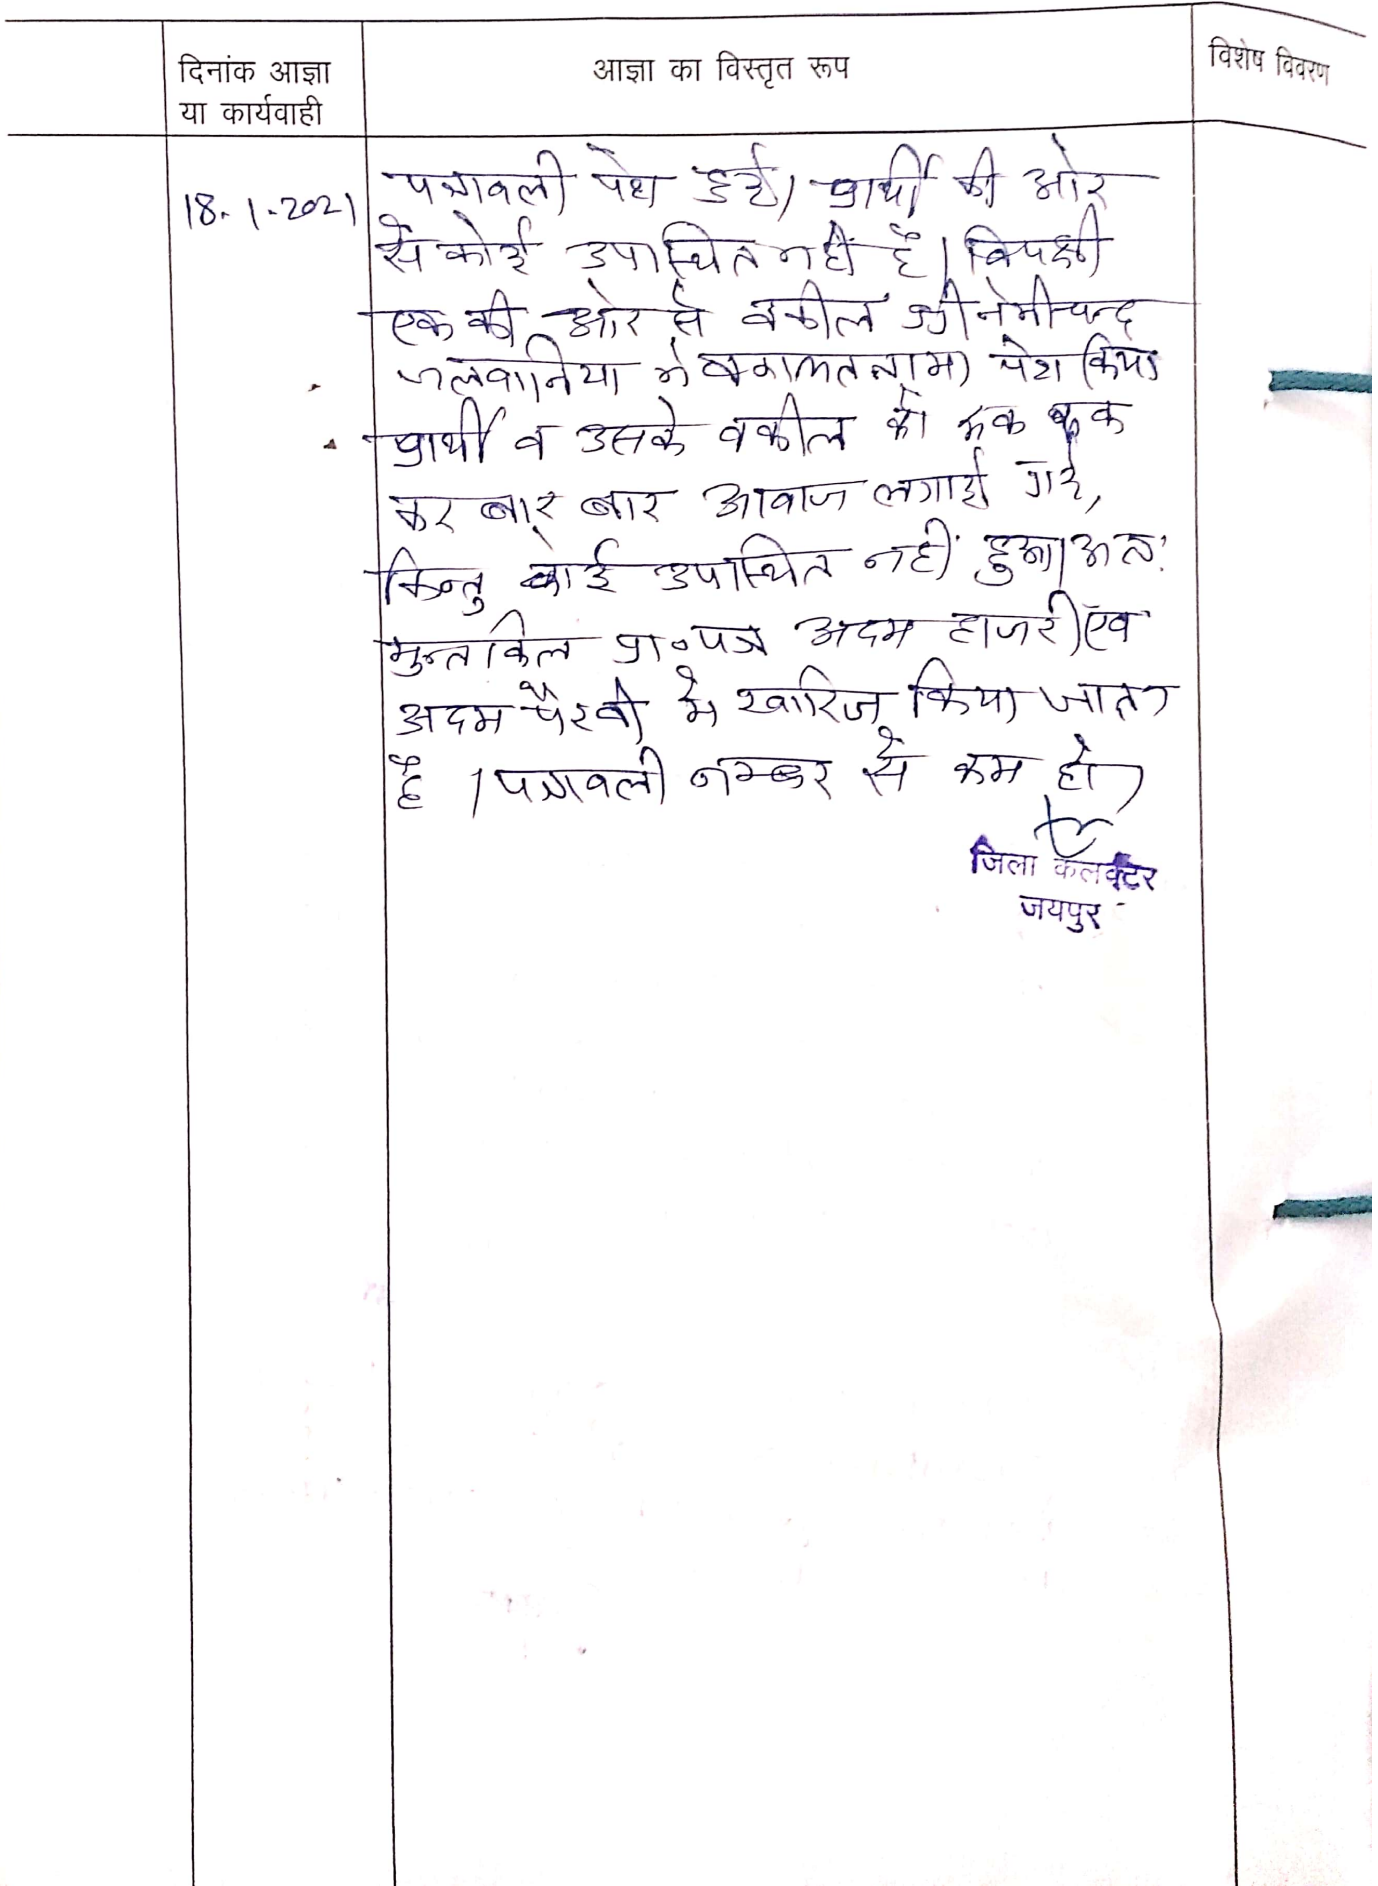 दिनांक आज्ञा
या कार्यवाही
आज्ञा का विस्तृत रूप
विशेष विवरण
18.1.2021
पत्रावली पेश हुई। प्रार्थी की ओर
से कोई उपस्थित नहीं है। विपक्षी
एक की ओर से वकील श्री नेमीचन्द
जलवानिया ने वकालतनामा पेश किया
प्रार्थी व उसके वकील को रूक रूक
कर बार बार आवाज लगाई गई,
किन्तु कोई उपस्थित नहीं हुआ। अतः
मुन्तकिल प्रा०पत्र अदम हाजरी एवं
अदम पैरवी में खारिज किया जाता
है। पत्रावली नम्बर से कम हो।
जिला कलक्टर
जयपुर